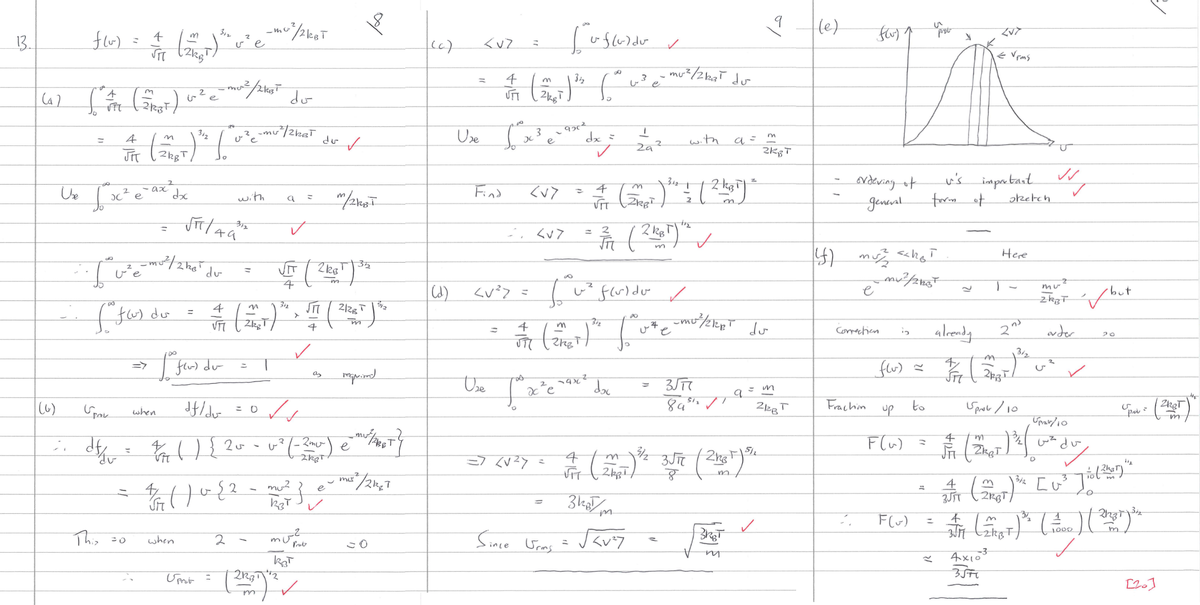 8
13. f(v) = 4/√π (m/2k_BT)^{3/2} v² e^{-mv²/2k_BT}
(a) ∫₀^∞ 4/√π (m/2k_BT) v² e^{-mv²/2k_BT} dv
= 4/√π (m/2k_BT)^{3/2} ∫₀^∞ v² e^{-mv²/2k_BT} dv ✓
Use ∫₀^∞ x² e^{-ax²} dx with a = m/2k_BT
= √π/4a^{3/2} ✓
∴ ∫₀^∞ v² e^{-mv²/2k_BT} dv = √π/4 (2k_BT/m)^{3/2}
∴ ∫₀^∞ f(v) dv = 4/√π (m/2k_BT)^{3/2} × √π/4 (2k_BT/m)^{3/2}
⇒ ∫₀^∞ f(v) dv = 1 ✓ as required
(b) v_prob when df/dv = 0 ✓✓
∴ df/dv = 4/√π ( ) { 2v - v² (-2mv/2k_BT) e^{-mv²/2k_BT} }
= 4/√π ( ) v { 2 - mv²/k_BT } e^{-mv²/2k_BT} ✓
This =0 when 2 - mv²_prob/k_BT = 0
∴ v_prob = (2k_BT/m)^{1/2} ✓
9
(c) <v> = ∫₀^∞ v f(v) dv ✓
= 4/√π (m/2k_BT)^{3/2} ∫₀^∞ v³ e^{-mv²/2k_BT} dv
Use ∫₀^∞ x³ e^{-ax²} dx = 1/2a² with a = m/2k_BT ✓
Find <v> = 4/√π (m/2k_BT)^{3/2} 1/2 (2k_BT/m)²
∴ <v> = 2/√π (2k_BT/m)^{1/2} ✓
(d) <v²> = ∫₀^∞ v² f(v) dv ✓
= 4/√π (m/2k_BT)^{3/2} ∫₀^∞ v⁴ e^{-mv²/2k_BT} dv
Use ∫₀^∞ x² e^{-ax²} dx = 3√π/8a^{5/2} ✓, a = m/2k_BT
⇒ <v²> = 4/√π (m/2k_BT)^{3/2} 3√π/8 (2k_BT/m)^{5/2}
= 3k_BT/m
Since v_rms = √<v²> = √(3k_BT/m) ✓
(e) f(v) v_prob <v>
← v_rms
v
- ordering of v's important ✓✓
- general form of sketch ✓
(f) mv²/2 << k_BT. Here
e^{-mv²/2k_BT} ≈ 1 - mv²/2k_BT, ✓ but
Correction is already 2nd order so
f(v) ≈ 4/√π (m/2k_BT)^{3/2} v² ✓
Fraction up to v_prob/10 v_prob = (2k_BT/m)^{1/2}
F(v) = 4/√π (m/2k_BT)^{3/2} ∫₀^{v_prob/10} v² dv ✓
= 4/3√π (m/2k_BT)^{3/2} [v³]₀^{1/10 (2k_BT/m)^{1/2}}
∴ F(v) = 4/3√π (m/2k_BT)^{3/2} (1/1000) (2k_BT/m)^{3/2}
≈ 4×10⁻³/3√π ✓
[20]